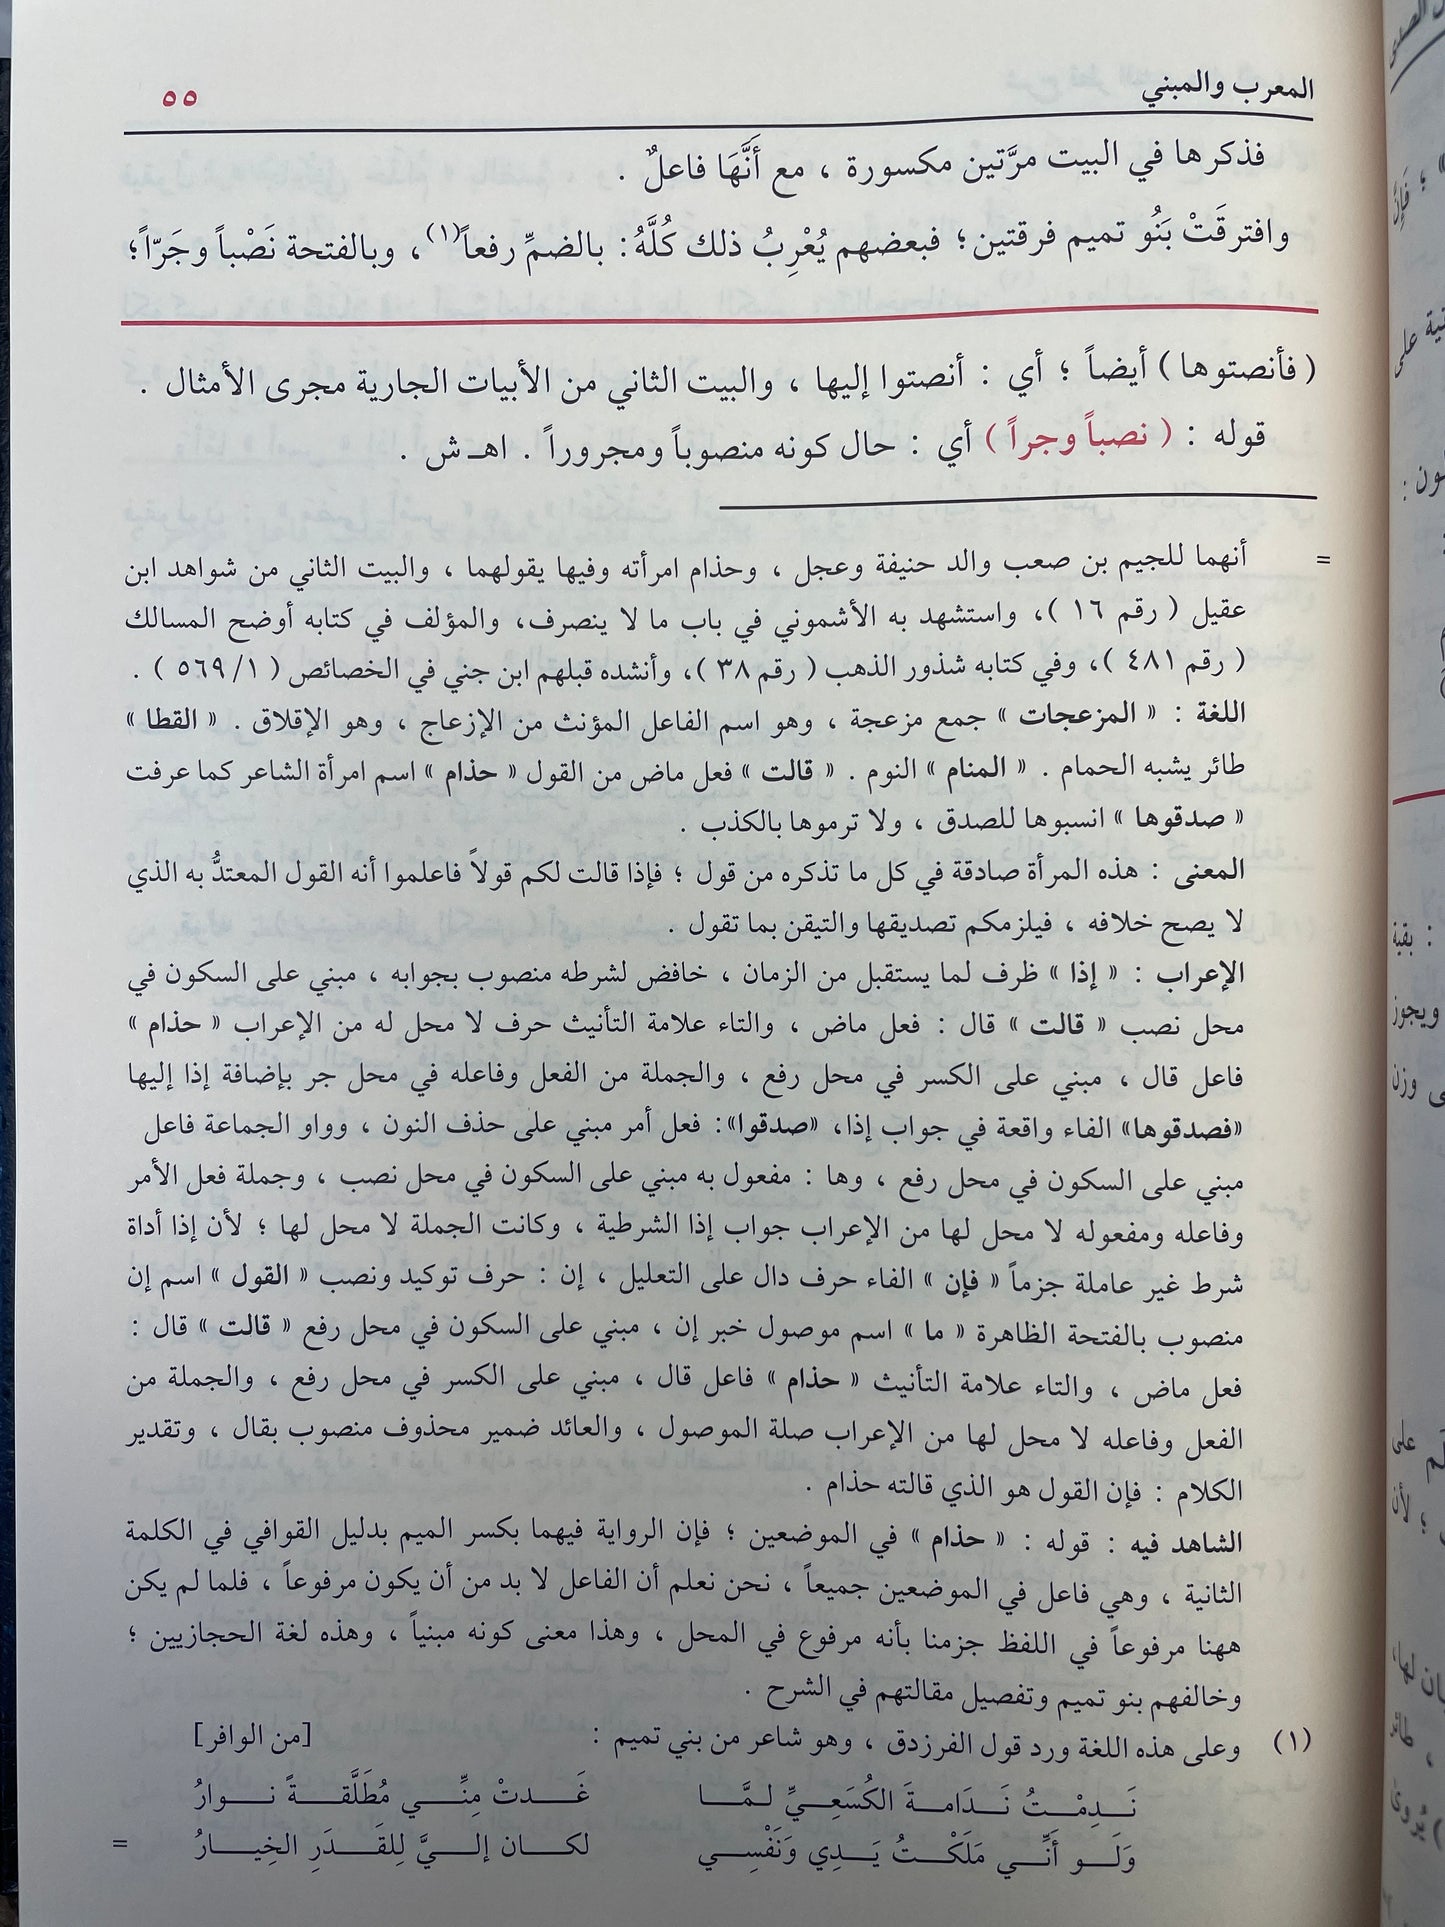 المعرب والمبني
٥٥
فذكرها في البيت مرَّتين مكسورة ، مع أَنَّهَا فاعلٌ .
وافترقَتْ بَنُو تميم فرقتين؛ فبعضهم يُعْرِبُ ذلك كُلَّهُ: بالضمِّ رفعاً(١)، وبالفتحة نَصْباً وجَرّاً؛
( فأنصتوها ) أيضاً ؛ أي : أنصتوا إليها ، والبيت الثاني من الأبيات الجارية مجرى الأمثال .
قوله : ( نصباً وجراً ) أي : حال كونه منصوباً ومجروراً . اهـ ش .
= أنهما للجيم بن صعب والد حنيفة وعجل ، وحذام امرأته وفيها يقولهما ، والبيت الثاني من شواهد ابن
عقيل ( رقم ١٦ )، واستشهد به الأشموني في باب ما لا ينصرف، والمؤلف في كتابه أوضح المسالك
( رقم ٤٨١ )، وفي كتابه شذور الذهب ( رقم ٣٨ )، وأنشده قبلهم ابن جني في الخصائص ( ١/ ٥٦٩ ) .
اللغة : « المزعجات » جمع مزعجة ، وهو اسم الفاعل المؤنث من الإزعاج ، وهو الإقلاق . « القطا »
طائر يشبه الحمام . « المنام » النوم . « قالت » فعل ماض من القول « حذام » اسم امرأة الشاعر كما عرفت
« صدقوها » انسبوها للصدق ، ولا ترموها بالكذب .
المعنى : هذه المرأة صادقة في كل ما تذكره من قول ؛ فإذا قالت لكم قولاً فاعلموا أنه القول المعتدُّ به الذي
لا يصح خلافه ، فيلزمكم تصديقها والتيقن بما تقول .
الإعراب : « إذا » ظرف لما يستقبل من الزمان ، خافض لشرطه منصوب بجوابه ، مبني على السكون في
محل نصب « قالت » قال : فعل ماض ، والتاء علامة التأنيث حرف لا محل له من الإعراب « حذام »
فاعل قال ، مبني على الكسر في محل رفع ، والجملة من الفعل وفاعله في محل جر بإضافة إذا إليها
«فصدقوها» الفاء واقعة في جواب إذا، «صدقوا»: فعل أمر مبني على حذف النون ، وواو الجماعة فاعل
مبني على السكون في محل رفع ، وها : مفعول به مبني على السكون في محل نصب ، وجملة فعل الأمر
وفاعله ومفعوله لا محل لها من الإعراب جواب إذا الشرطية ، وكانت الجملة لا محل لها ؛ لأن إذا أداة
شرط غير عاملة جزماً « فإن » الفاء حرف دال على التعليل ، إن : حرف توكيد ونصب « القول » اسم إن
منصوب بالفتحة الظاهرة « ما » اسم موصول خبر إن ، مبني على السكون في محل رفع « قالت » قال :
فعل ماض ، والتاء علامة التأنيث « حذام » فاعل قال ، مبني على الكسر في محل رفع ، والجملة من
الفعل وفاعله لا محل لها من الإعراب صلة الموصول ، والعائد ضمير محذوف منصوب بقال ، وتقدير
الكلام : فإن القول هو الذي قالته حذام .
الشاهد فيه : قوله : « حذام » في الموضعين ؛ فإن الرواية فيهما بكسر الميم بدليل القوافي في الكلمة
الثانية ، وهي فاعل في الموضعين جميعاً ، نحن نعلم أن الفاعل لا بد من أن يكون مرفوعاً ، فلما لم يكن
ههنا مرفوعاً في اللفظ جزمنا بأنه مرفوع في المحل ، وهذا معنى كونه مبنياً ، وهذه لغة الحجازيين ؛
وخالفهم بنو تميم وتفصيل مقالتهم في الشرح .
(١) وعلى هذه اللغة ورد قول الفرزدق ، وهو شاعر من بني تميم : [من الوافر]
نَدِمْتُ نَدَامةَ الكُسَعِيِّ لمَّا غَدتْ مِنِّي مُطَلَّقةً نوارُ
وَلَو أَنِّي مَلَكْتُ يَدِي وَنَفْسِي لكان إليَّ لِلقَدَرِ الخِيارُ =